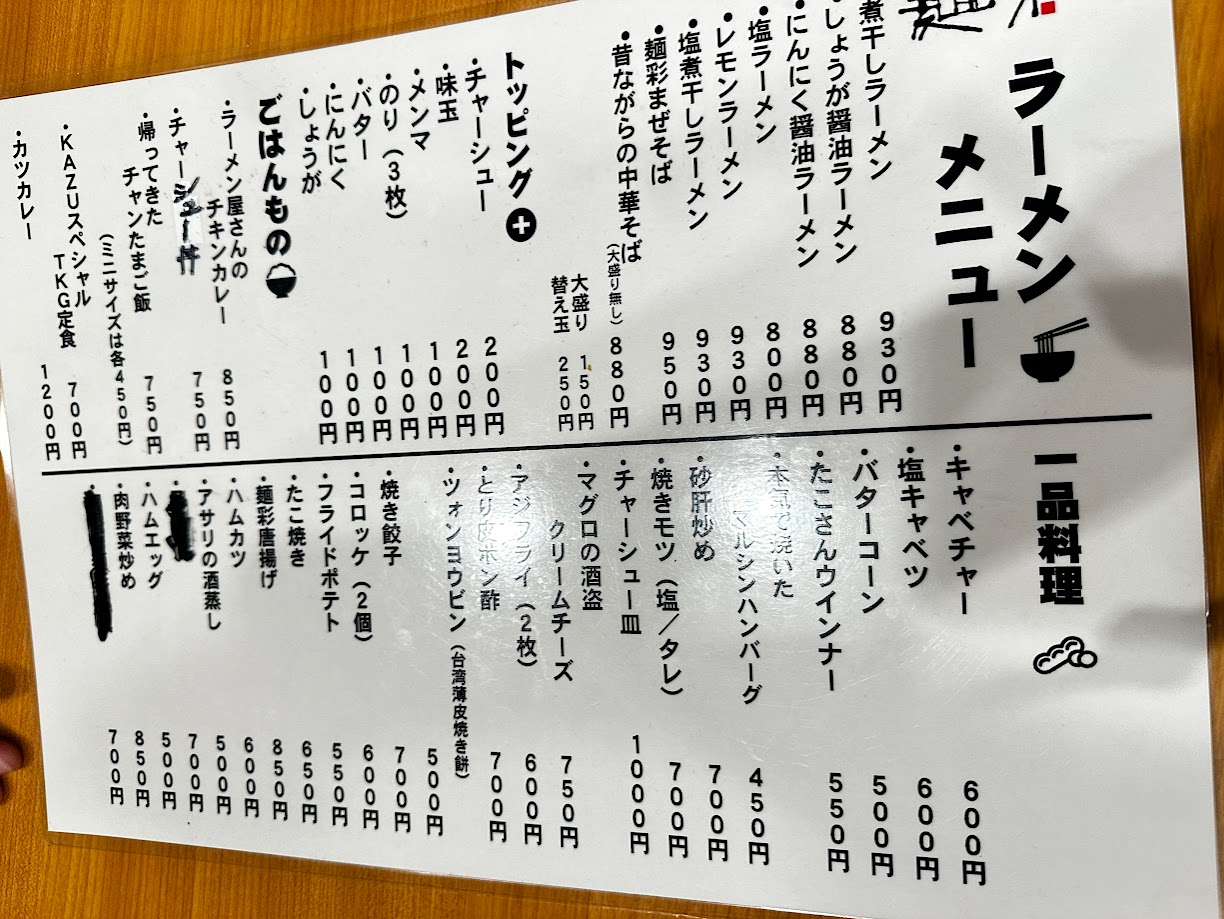 ラーメン
メニュー
煮干しラーメン 930円
・しょうが醤油ラーメン 880円
・にんにく醤油ラーメン 880円
・塩ラーメン 800円
・レモンラーメン 930円
・塩煮干しラーメン 930円
・麺彩まぜそば 950円
・昔ながらの中華そば(大盛り無し) 880円
大盛り 150円
替え玉 250円
トッピング
・チャーシュー 200円
・味玉 200円
・メンマ 100円
・のり(3枚) 100円
・バター 100円
・にんにく 100円
・しょうが 100円
ごはんもの
・ラーメン屋さんの
チキンカレー 850円
・チャーシュー丼 750円
・帰ってきた
チャンたまご飯 750円
(ミニサイズは各450円)
・KAZUスペシャル
TKG定食 700円
・カツカレー 1200円
一品料理
・キャベチャー 600円
・塩キャベツ 600円
・バターコーン 500円
・たこさんウインナー 550円
・本気で焼いた
マルシンハンバーグ 450円
・砂肝炒め 700円
・焼きモツ(塩/タレ) 700円
・チャーシュー皿 1000円
・マグロの酒盗
クリームチーズ 750円
・アジフライ(2枚) 600円
・とり皮ポン酢 700円
・ツォンヨウピン(台湾薄皮焼き餅) 500円
・焼き餃子 700円
・コロッケ(2個) 600円
・フライドポテト 550円
・たこ焼き 650円
・麺彩唐揚げ 850円
・ハムカツ 600円
・アサリの酒蒸し 500円
700円
・ハムエッグ 500円
・肉野菜炒め 850円
700円